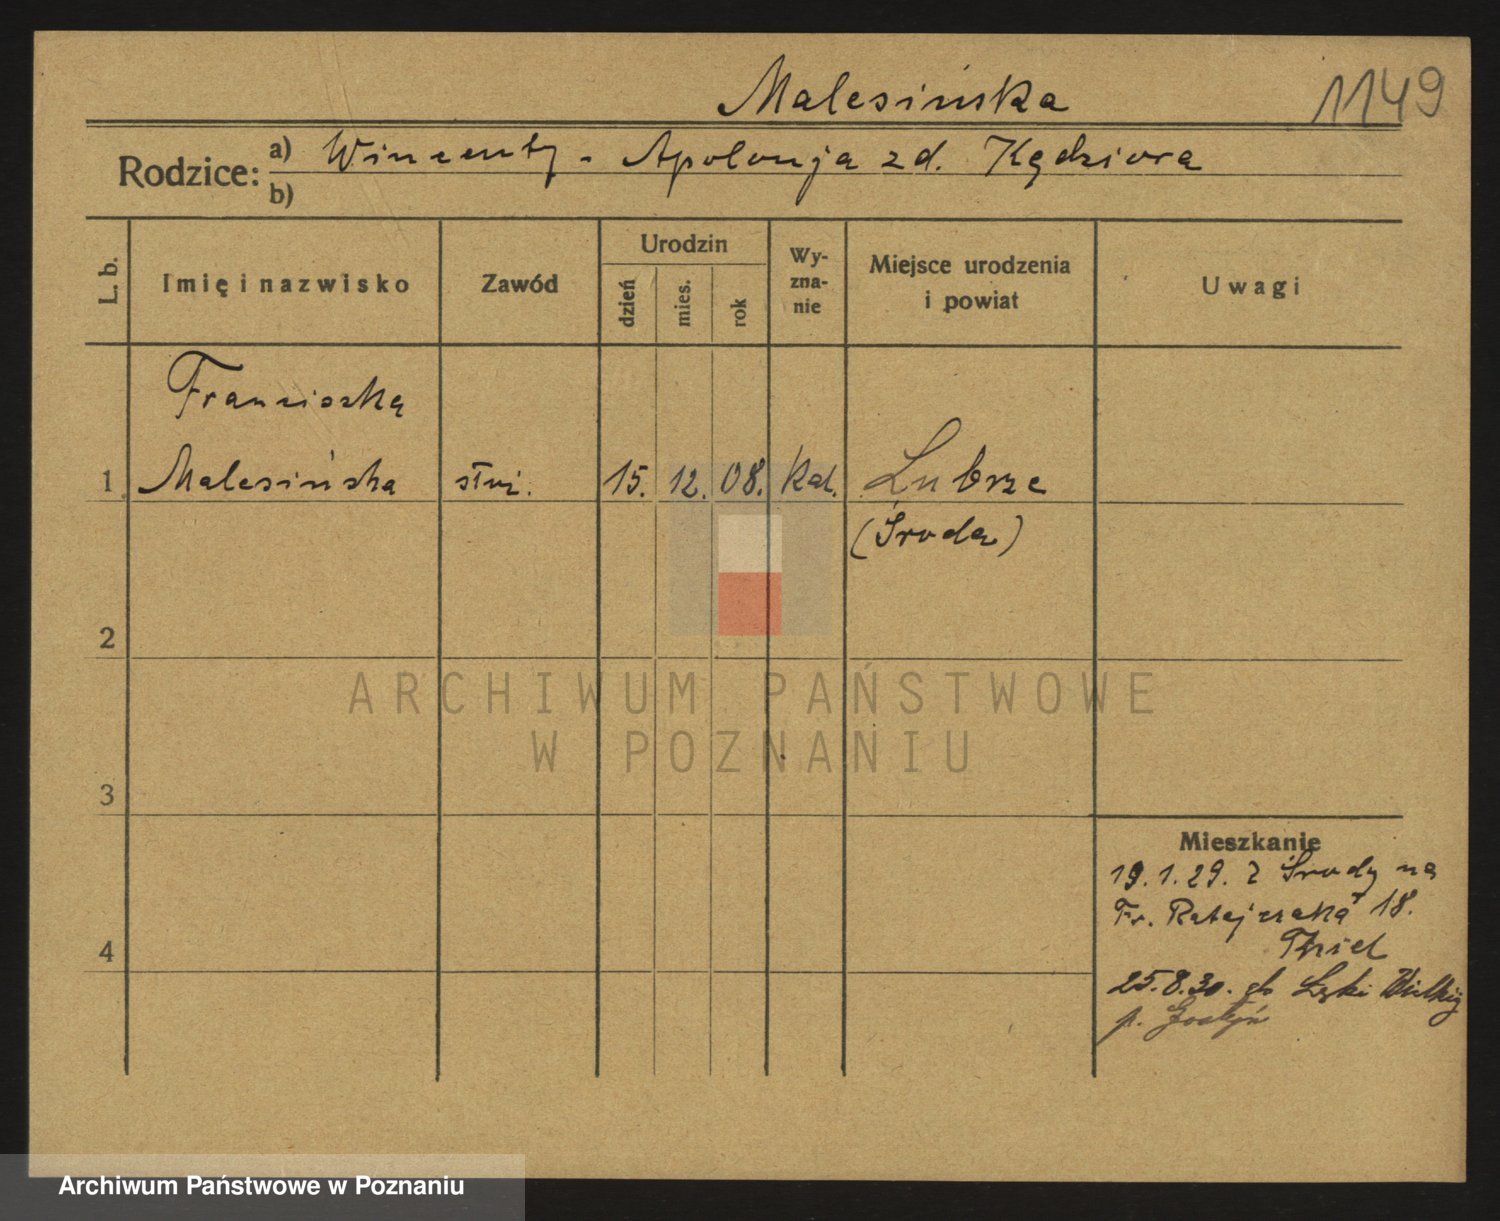 Malesińska
1149
Rodzice: a) Wincenty - Apolonja zd. Kędziora
b)
L. b.
Imię i nazwisko
Zawód
Urodzin
dzień
mies.
rok
Wy-
zna-
nie
Miejsce urodzenia
i powiat
Uwagi
Franciszka
1 Malesińska służ. 15. 12. 08. kat. Lubrze
(Środa)
2
3
4
Mieszkanie
19.1.29. z Środy na
Fr. Ratajczaka 18.
Thiel
25.8.30. do Łęki Wielkiej
p. Gostyń
ARCHIWUM PAŃSTWOWE
W POZNANIU
Archiwum Państwowe w Poznaniu